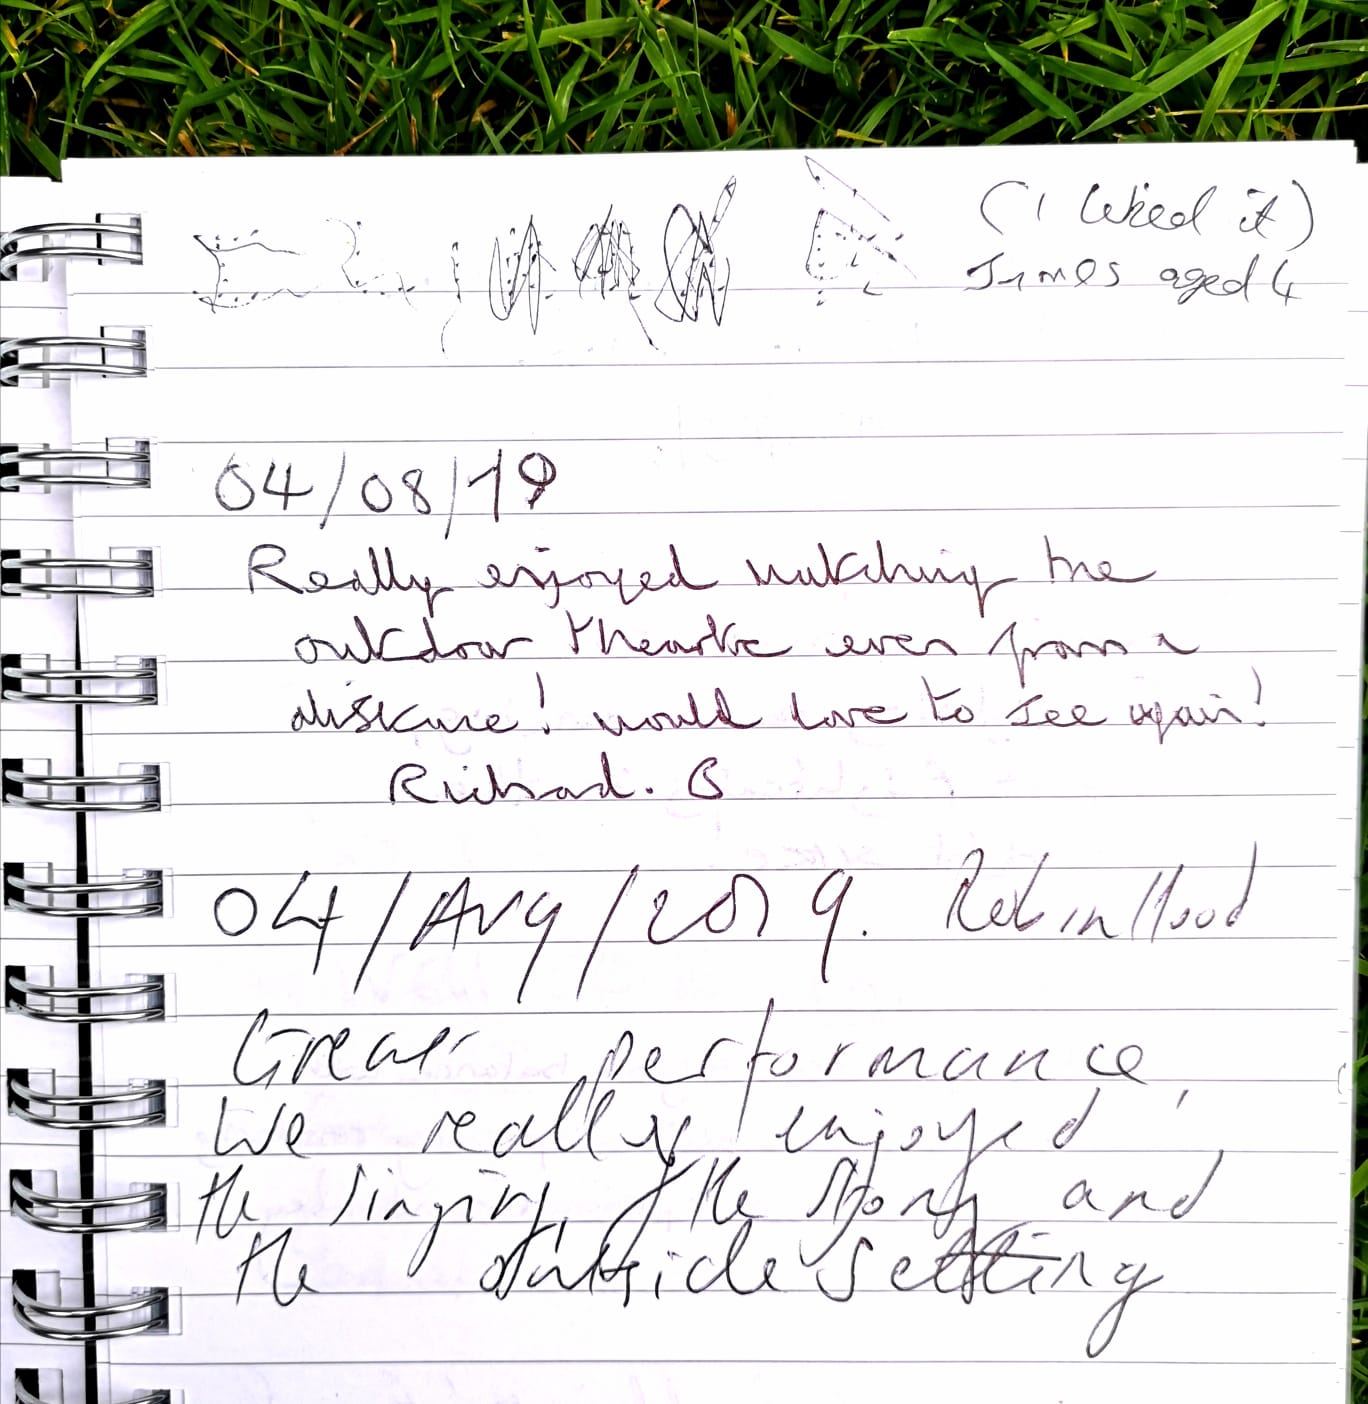 (I liked it)
James aged 4
04/08/19
Really enjoyed watching the
outdoor theartre even from a
distance! would love to see again!
Richard. B
04/Aug/2019. Robin Hood
Great performance,
We really enjoyed
the singing, the story and
the outside setting